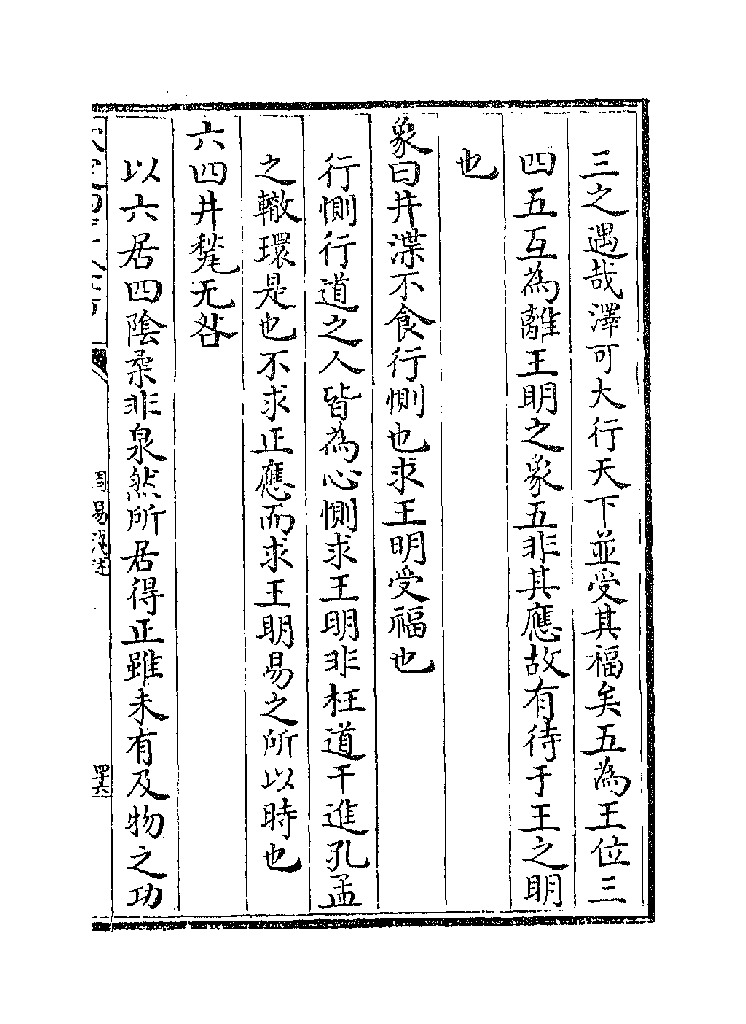 三之遇哉澤可大行天下並受其福矣五為王位三
四五互為離王明之象五非其應故有待于王之明
也
象曰井渫不食行惻也求王明受福也
行惻行道之人皆為心惻求王明非枉道干進孔孟
之轍環是也不求正應而求王明易之所以時也
六四井甃无咎
以六居四陰柔非泉然所居得正雖未有及物之功